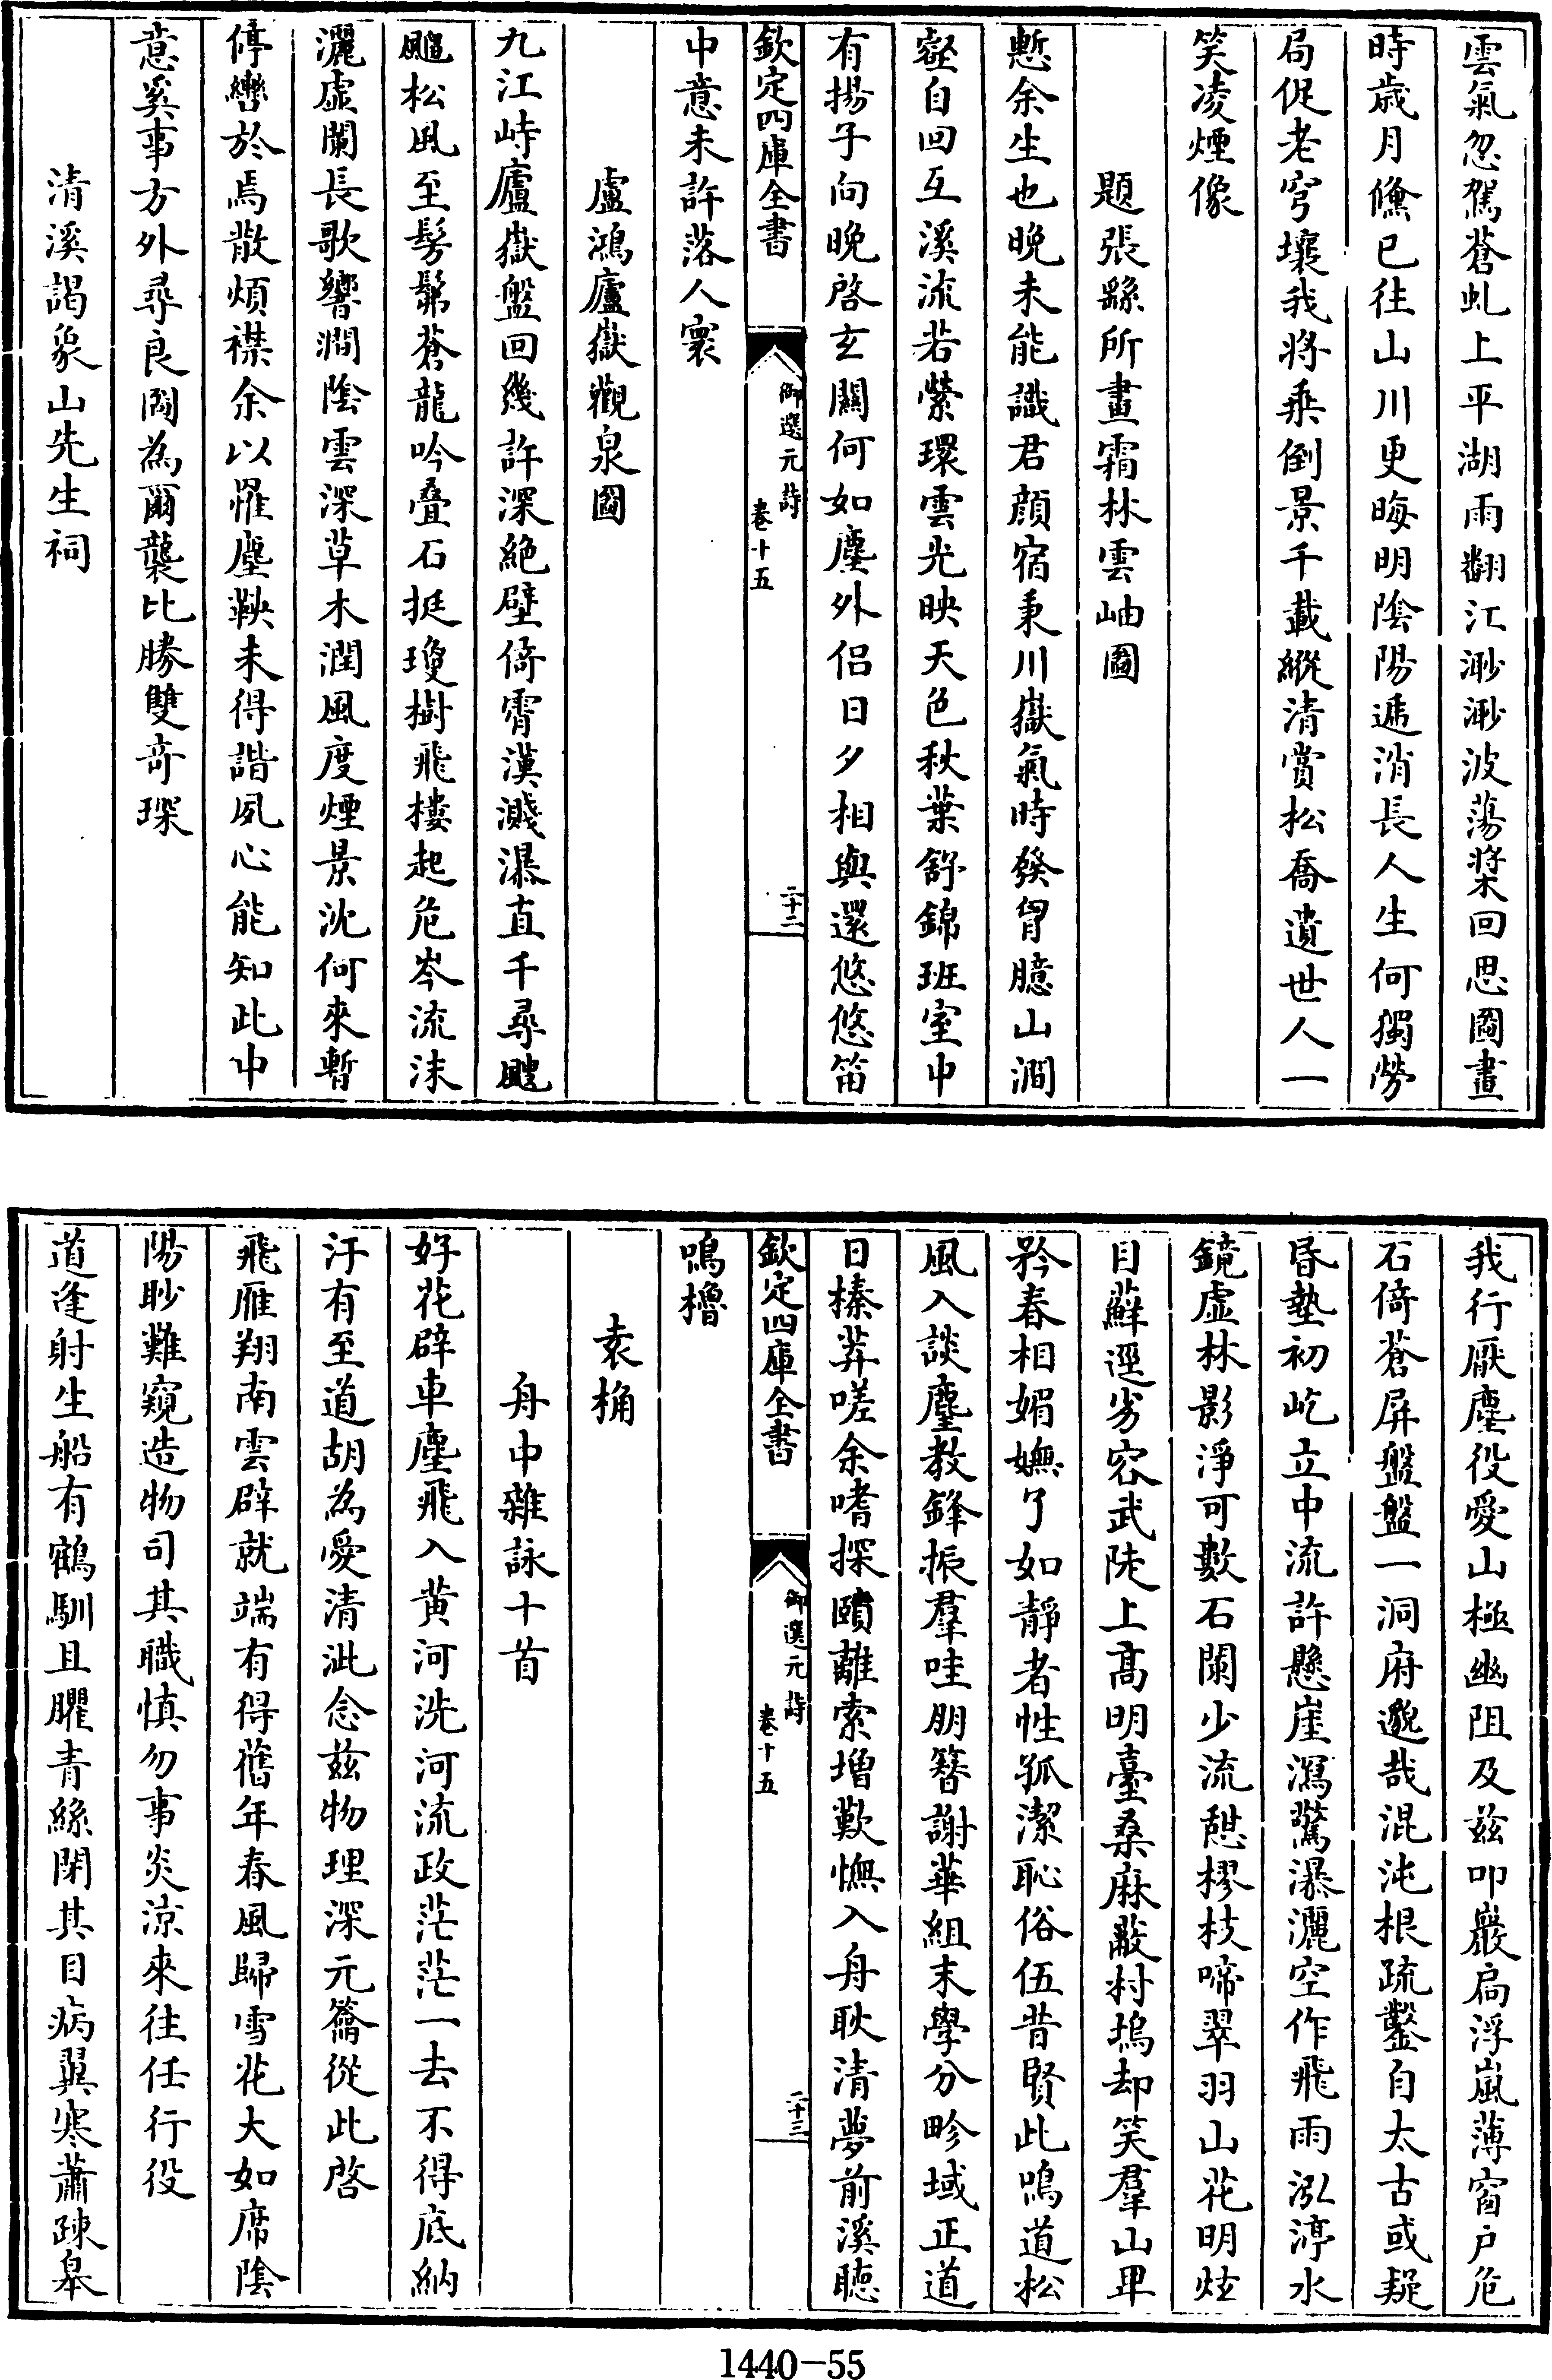 雲氣忽駕蒼虬上平湖雨翻江渺渺波蕩槳回思圖畫
時歲月儵已往山川更晦明陰陽遞消長人生何獨勞
局促老穹壤我將乘倒景千載縱清賞松喬遺世人一
笑凌煙像
題張繇所畫霜林雲岫圖
慙余生也晚未能識君顔宿秉川嶽氣時發胷臆山澗
壑自回互溪流若縈環雲光映天色秋葉舒錦班室中
有揚子向晚啓玄關何如塵外侣日夕相與還悠悠笛
欽定四庫全書
御選元詩
卷十五
二十二
中意未許落人寰
盧鴻廬嶽觀泉圖
九江峙廬嶽盤回幾許深絶壁倚霄漢濺瀑直千尋颼
飀松風至髣髴蒼龍吟叠石挺瓊樹飛樓起危岑流沫
灑虚闌長歌響澗陰雲深草木潤風度煙景沈何來暫
停轡於焉散煩襟余以罹塵鞅未得諧夙心能知此中
意奚事方外尋良圖為爾襲比勝雙竒琛
清溪謁象山先生祠
我行厭塵役愛山極幽阻及兹叩巖扃浮嵐薄窗户危
石倚蒼屏盤盤一洞府邈哉混沌根疏鑿自太古或疑
昏墊初屹立中流許懸崖瀉驚瀑灑空作飛雨泓渟水
鏡虚林影淨可數石闌少流憇樛枝啼翠羽山花明炫
目蘚逕劣容武陡上髙明臺桑麻蔽村塢却笑羣山卑
矜春相媚嫵了如靜者性孤潔恥俗伍昔賢此鳴道松
風入談麈教鋒振羣哇朋簪謝華組末學分畛域正道
日榛莽嗟余嗜探賾離索增歎憮入舟耿清夢前溪聴
欽定四庫全書
御選元詩
卷十五
二十三
鳴櫓
袁桷
舟中雜詠十首
好花辟車塵飛入黄河洗河流政茫茫一去不得底納
汙有至道胡為愛清泚念兹物理深元籥從此啓
飛雁翔南雲辟就端有得舊年春風歸雪花大如席陰
陽眇難窺造物司其職慎勿事炎涼來往任行役
道逢射生船有鶴馴且臞青絲閉其目病翼寒蕭疎皋
1440-55